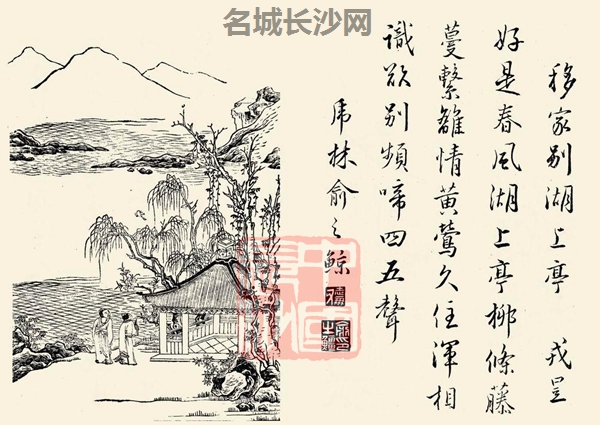 名城长沙网
移家别湖上亭 戎昱
好是春風湖上亭柳條藤
蔓繫離情黄鶯久住渾相
識欲别頻啼四五聲
虎林俞之鯨